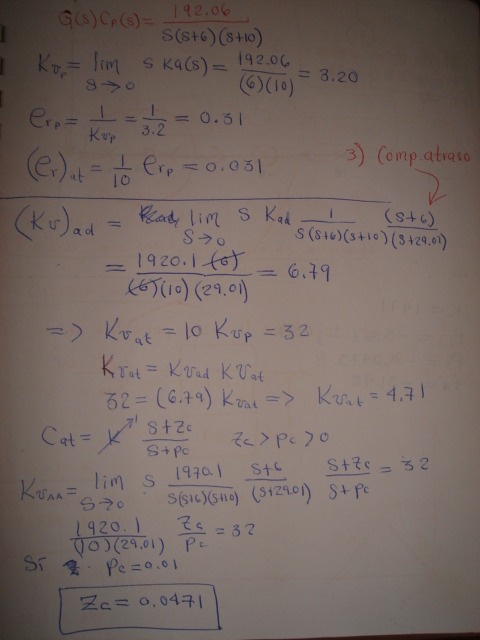 G(s)Cp(s) = 192.06 / S(S+6)(S+10)
Kvp = lim S→0 S KG(s) = 192.06 / (6)(10) = 3.20
erp = 1/Kvp = 1/3.2 = 0.31
(er)at = 1/10 erp = 0.031
3) Comp. atraso
(Kv)ad = lim S→0 S Kad 1 / S(S+6)(S+10) (S+6) / (S+29.01)
= 1920.1 (6) / (6)(10)(29.01) = 6.79
=> Kvat = 10 Kvp = 32
Kvat = Kvad Kvat
32 = (6.79) Kvat => Kvat = 4.71
Cat = K 1 S+Zc / S+Pc Zc > Pc > 0
KvAA = lim S→0 S 1970.1 / S(S+6)(S+10) S+6 / (S+29.01) S+Zc / S+Pc = 32
1920.1 / (10)(29.01) Zc / Pc = 32
Si Pc = 0.01
Zc = 0.0471